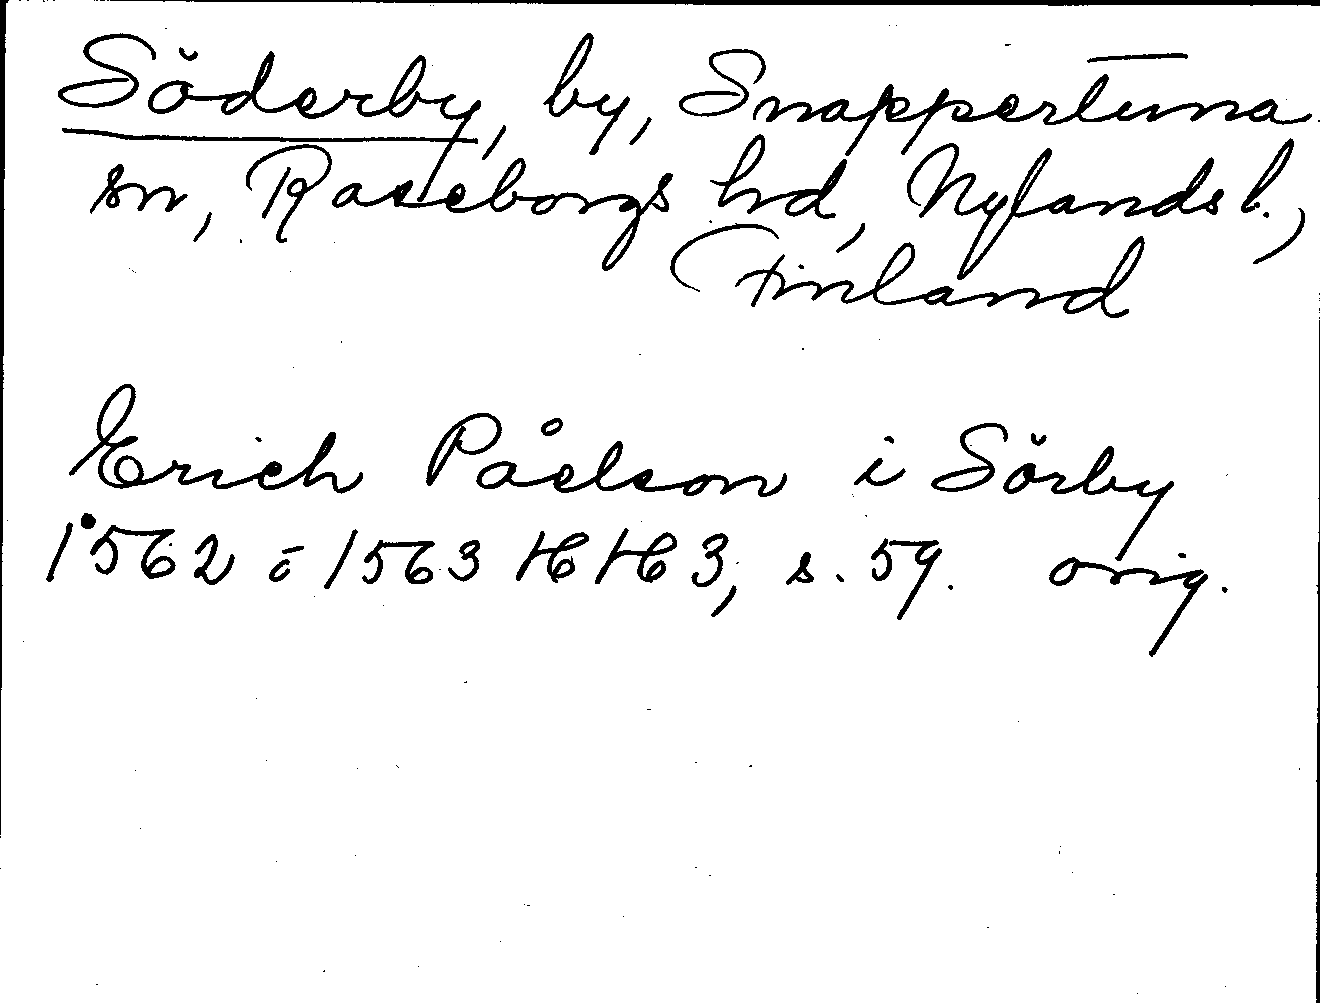 Söderby, by, Snappertuna
sn, Raseborgs hrd, Nylands l.,
Finland
Erich Påelson i Sörby
1562 ö 1563 HH 3, s. 59. orig.